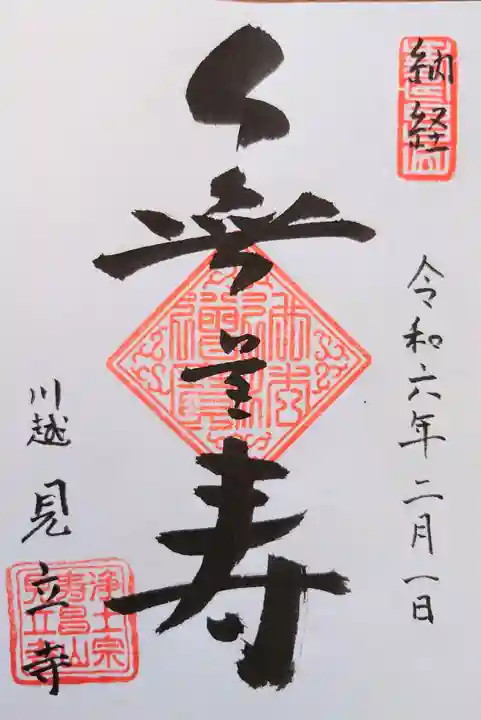 納経
令和六年二月一日
無量寿
川越 見立寺
浄土宗
寿昌山
見立寺